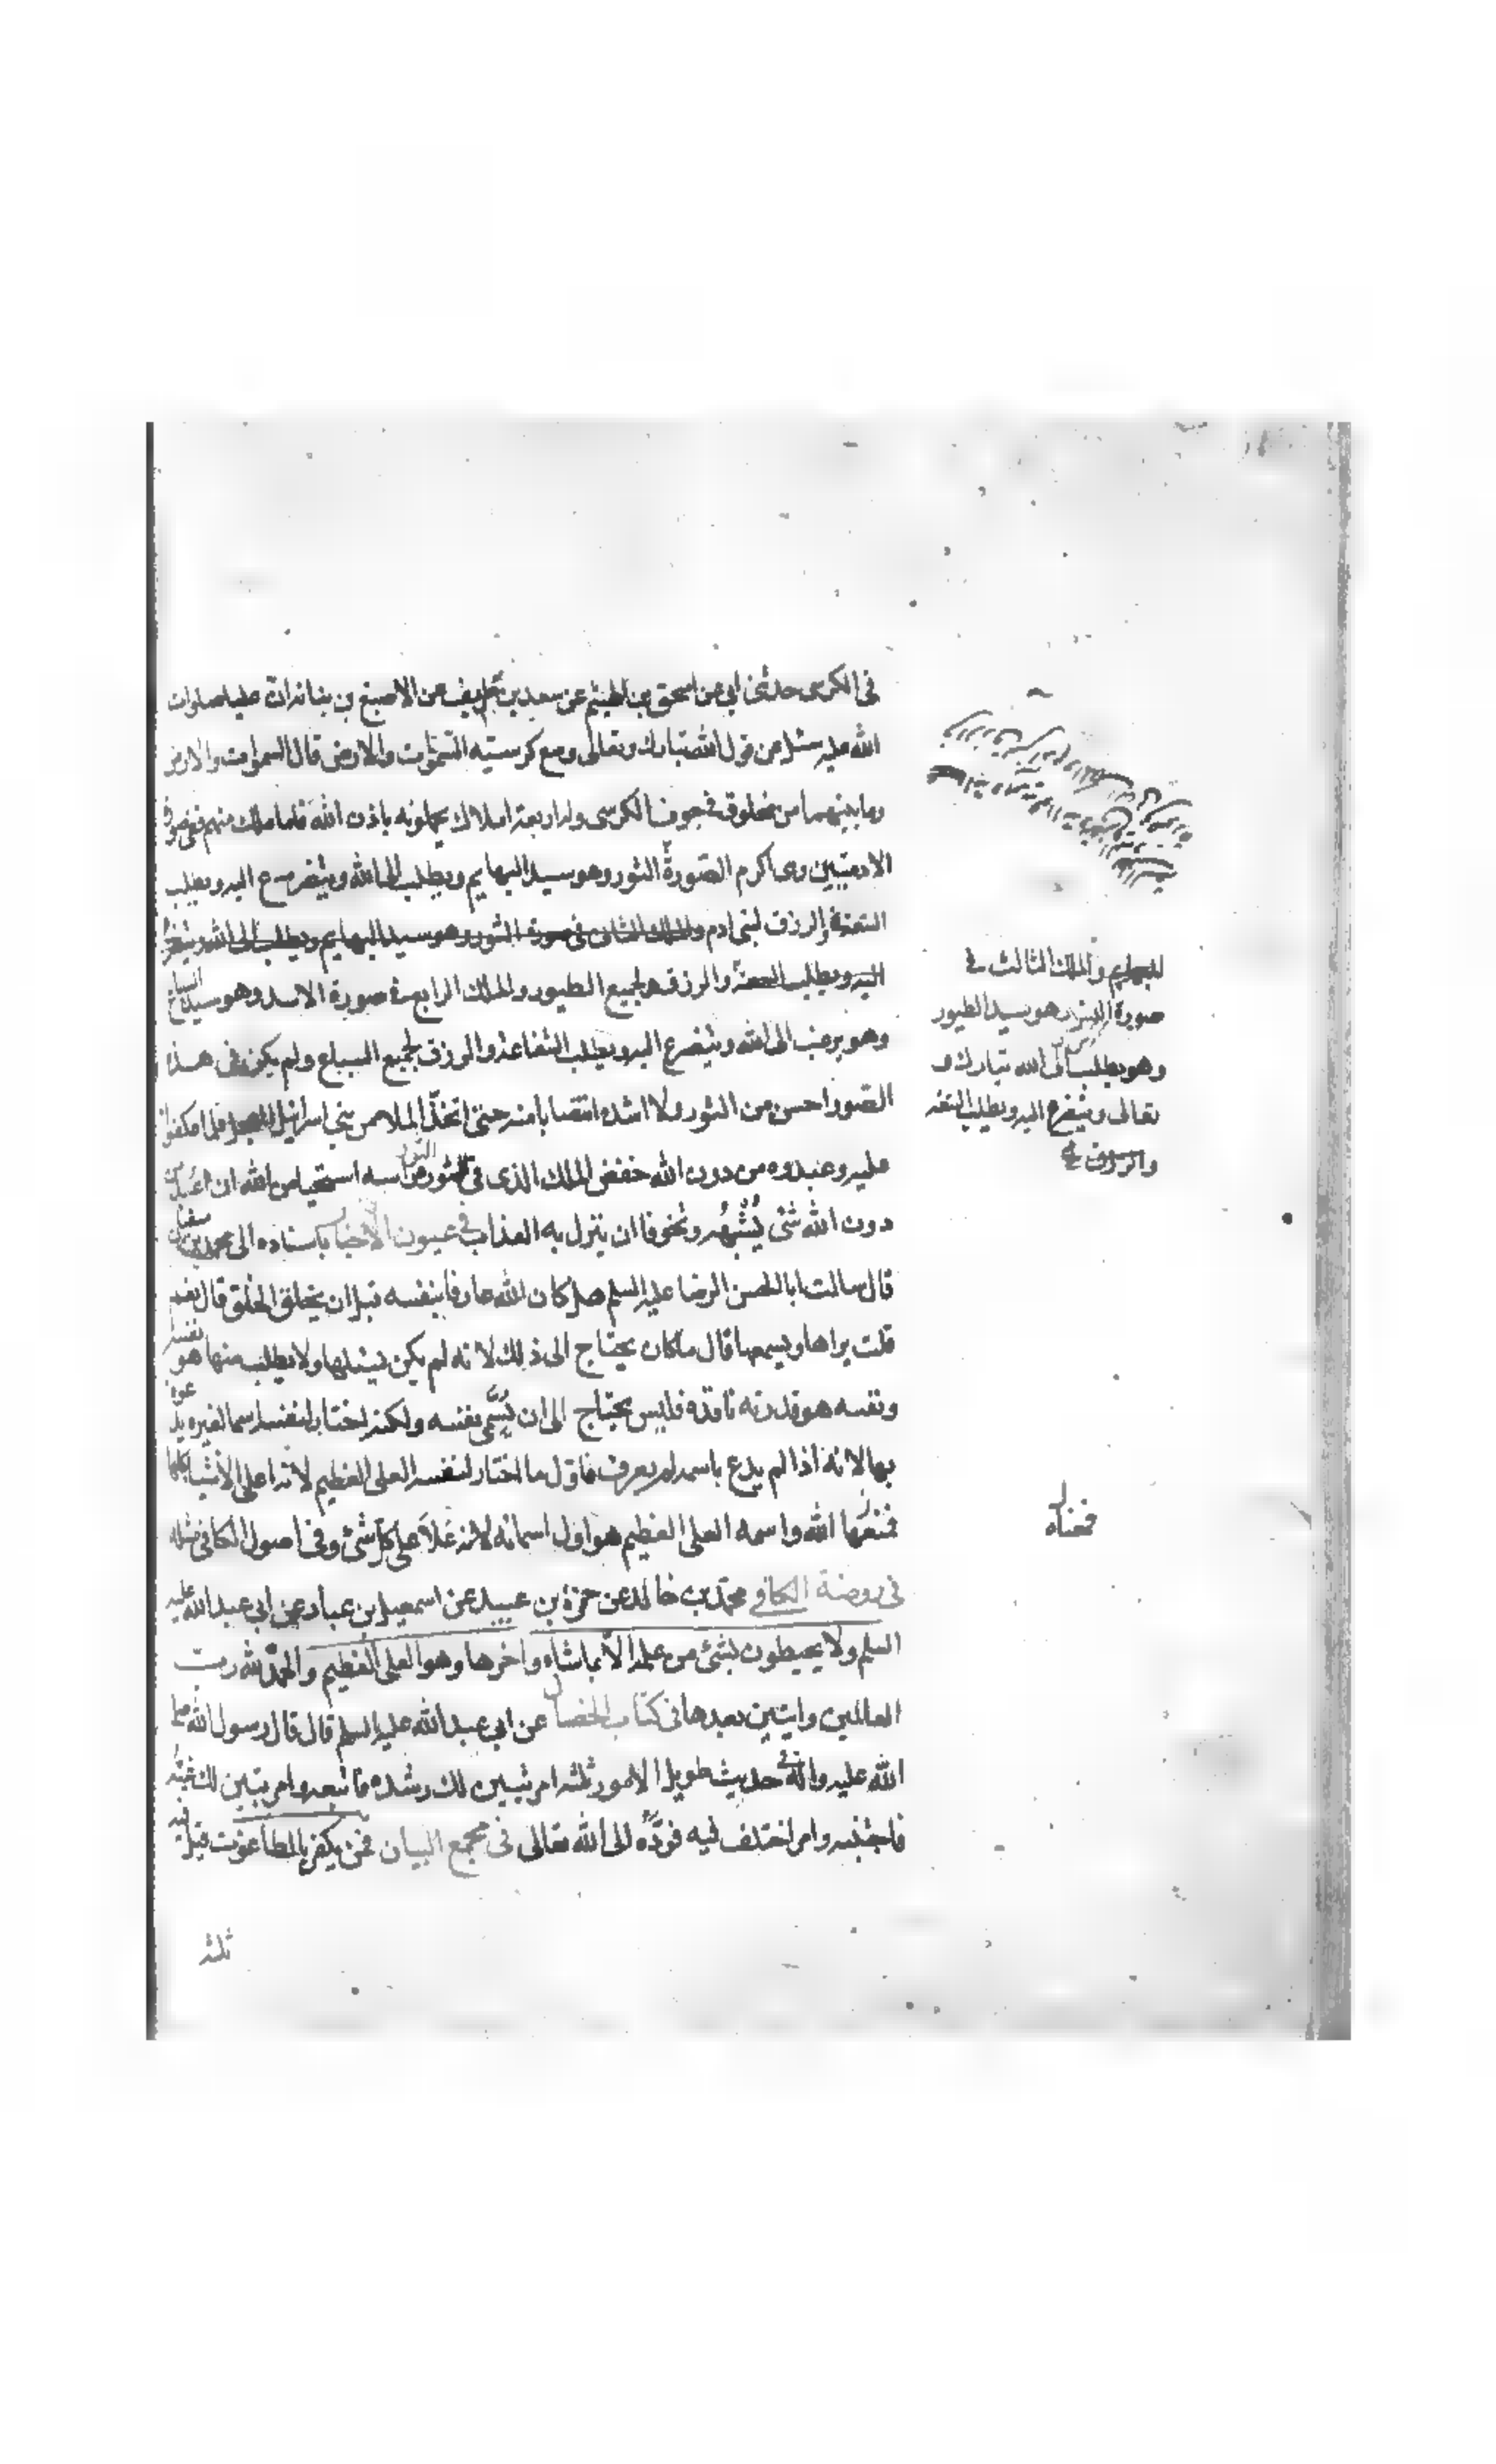 في الكرسى حدثنى ابى عن اسحق بن الهيثم عن سعد بن طريف عن الاصبغ بن نباتة ان عليا صلوات
الله عليه سئل عن قول الله تبارك وتعالى وسع كرسيه السموات والارض قال السموات والارض
وما بينهما من مخلوق في جوف الكرسى وله اربعة املاك يحملونه باذن الله فاما ملك منهم ففى صورة
الادميين وهى اكرم الصورة الثور وهو سيد البهايم ويطلب الى الله ويتضرع اليه ويطلب
السعة والرزق لبنى ادم والملك الثانى في صورة الثور وهو سيد البهايم ويطلب الى الله ويتضرع
اليه ويطلب السعة والرزق لجميع الطيور والملك الرابع في صورة الاسد وهو سيد السباع
وهو يرغب الى الله ويتضرع اليه ويطلب الشفاعة والرزق لجميع السباع ولم يكن في هذه
الصور احسن من الثور ولا اشد انتصابا منه حتى اتخذ الملا من بنى اسرائيل العجل فلما عكفوا
عليه وعبدوه من دون الله خفض الملك الذى في صورة الثور راسه استحيا من الله ان عبد من
دون الله شئ يشبهه وتخوفا ان ينزل به العذاب في عيون الاخبار باسناده الى محمد بن سنان
قال سالت ابا الحسن الرضا عليه السلم هل كان الله عارفا بنفسه قبل ان يخلق الخلق قال نعم
قلت يراها ويسمعها قال ما كان يحتاج الى ذلك لانه لم يكن يسئلها ولا يطلب منها هو نفسه
ونفسه هو قدرته نافذه فليس يحتاج الى ان يسمى نفسه ولكنه اختار لنفسه اسما لغيره يدعوه
بها لانه اذا لم يدع باسمه لم يعرف فاول ما اختار لنفسه العلى العظيم لانه اعلى الاشيا كلها
فمعناه الله واسمه العلى العظيم هو اول اسمائه لانه علا على كل شئ وفى اصول الكافى مثله
في روضة الكافي محمد بن خالد عن حمزة بن عبيد عن اسمعيل بن عباد عن ابى عبد الله عليه
السلم ولا يحيطون بشئ من علمه الا بما شاء واخرها وهو العلى العظيم والحمد لله رب
العالمين وايتين بعدها في كتاب الخصال عن ابى عبد الله عليه السلم قال قال رسول الله صلى
الله عليه واله في حديث طويل الامور ثلثه امر تبين لك رشده فاتبعه وامر تبين لك غيه
فاجتنبه وامر اختلف فيه فرده الى الله تعالى في مجمع البيان فمن يكفر بالطاغوت قيل فيه
ثلثه
للبهايم والملك الثالث في
صورة النسر وهو سيد الطيور
وهو يطلب الى الله تبارك و
تعالى ويتضرع اليه ويطلب السعة
والرزق
فمعناه